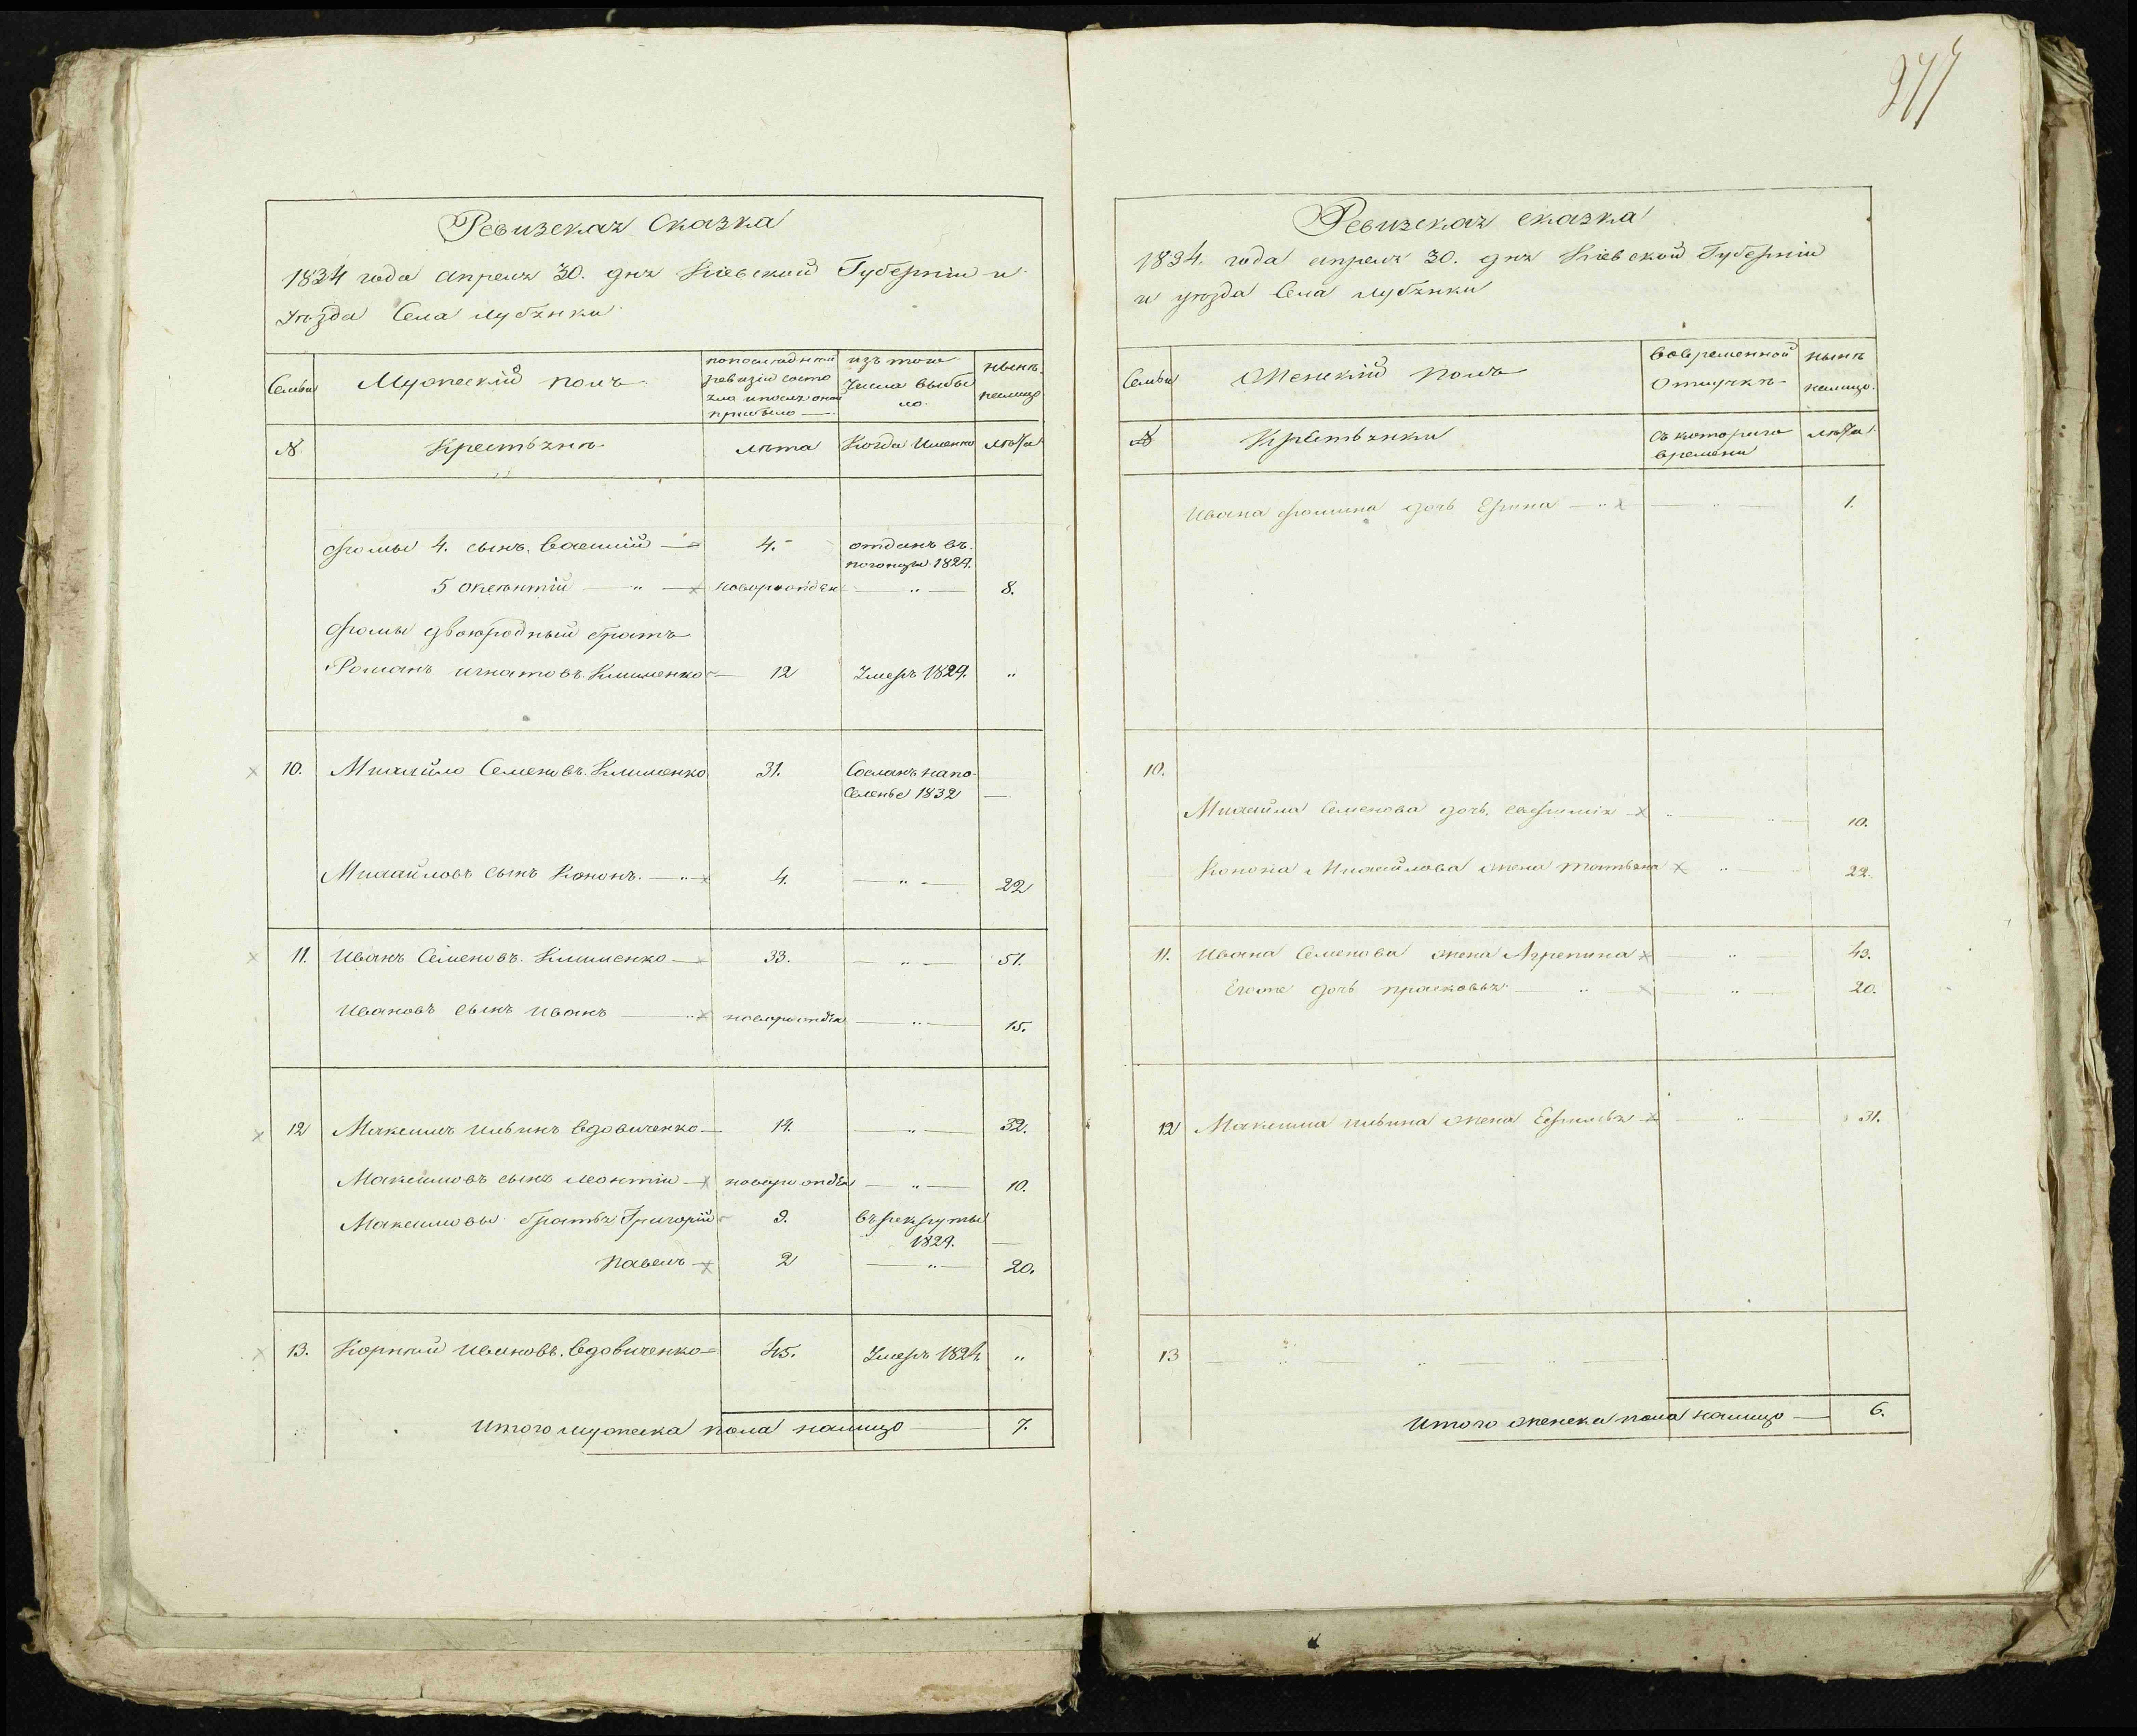 977
Ревизская Сказка
1834 года апреля 30. дня Кіевской Губерніи и
Уезда Села Лубянки
Семьи
Мужескій полъ
по последней
ревизіи состо
яло и после оной
прибыло
изъ того
числа выбы
ло.
ныне
налицо
№
Крестьяне
лета
Когда Именно
лета
Фомы 4. сынъ Василій
4.
отданъ въ
погонцы 1829.
5 Оксентій
новорожден
8.
Фомы двоюродный братъ
Романъ Игнатовъ Клименко
12
Умеръ 1829.
10.
Михайло Семеновъ Клименко
31.
Сосланъ на по-
селенье 1832
Михайловъ сынъ Кононъ.
4.
22
11.
Иванъ Семеновъ. Клименко
33.
51.
Ивановъ сынъ Иванъ
новорожден
15.
12
Максимъ Ильинъ Вдовиченко
14.
32.
Максимовъ сынъ Леонтій
новорожден
10.
Максимовы братья Григорій
9.
въ рекруты
1829.
Павелъ
2
20.
13.
Корній Ивановъ. Вдовиченко
45.
Умеръ 1824
Итого мужеска пола налицо
7.
Ревизская сказка
1834. года апреля 30. дня Кіевской Губерніи
и уезда Села Лубянки
Семьи
Женскій полъ
Во временной
отлучкѣ
ныне
налицо.
№
Крестьянки
Съ котораго
времени
лета
Ивана Фомина дочь
1.
10.
Михайла Семенова дочь Евфимія
10.
Конона Михайлова жена Татьяна
22.
11.
Ивана Семенова жена Агрепина
49.
Егоже дочь Прасковья
20.
12
Максима Ильина жена
31.
13
Итого женска пола налицо
6.